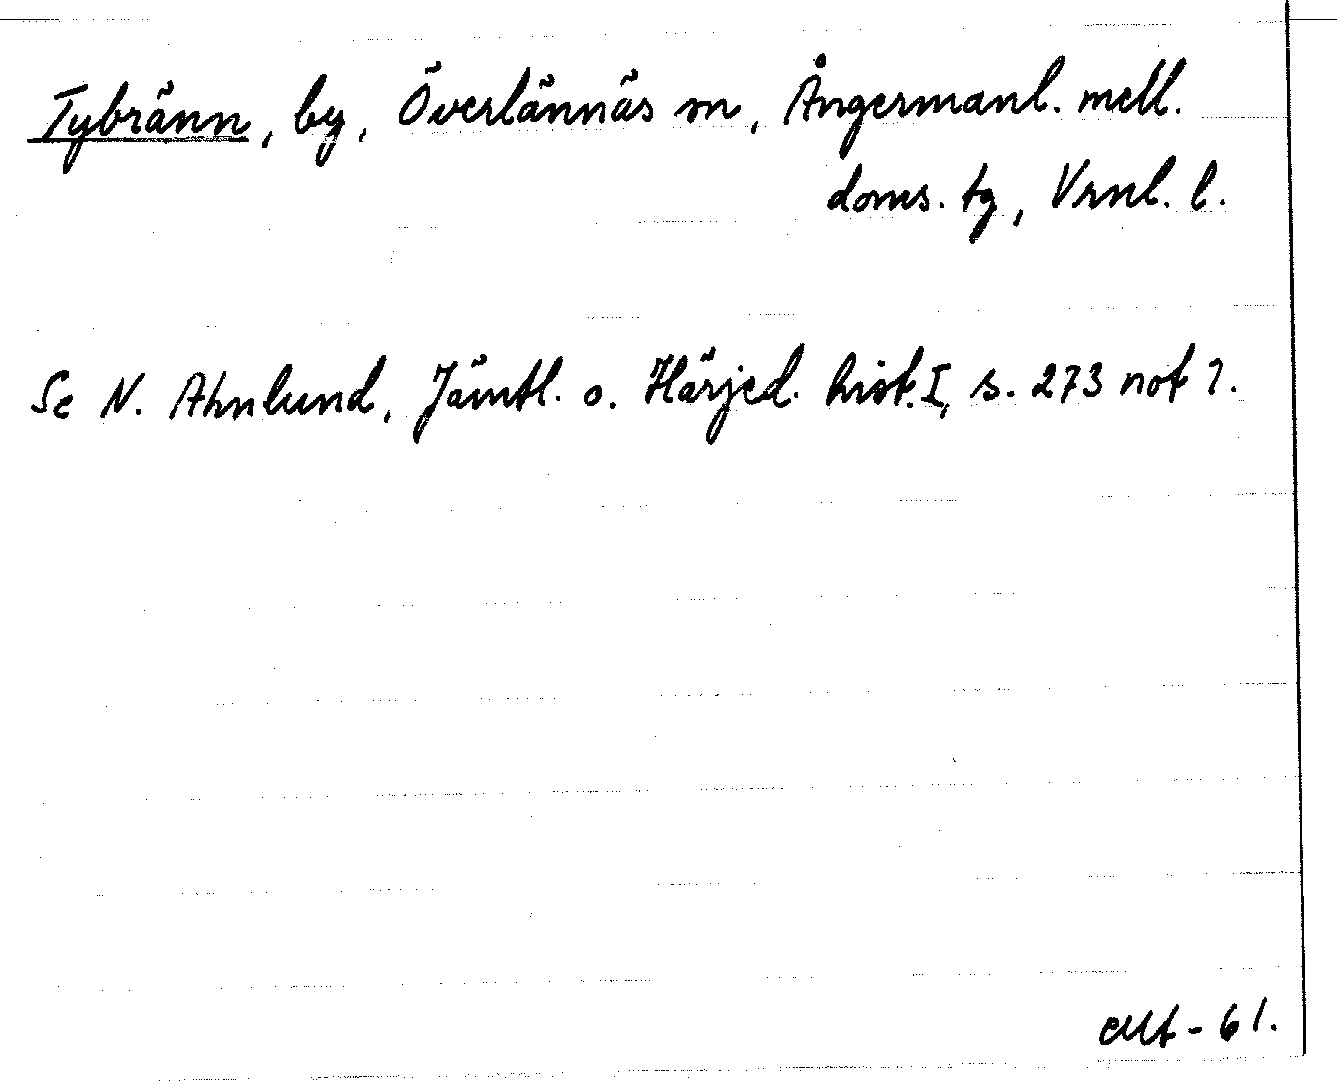 Tybränn, by, Överlännäs sn, Ångermanl. mell.
doms. tg, Vrnl. l.
Se N. Ahnlund, Jämtl. o. Härjed. hist. I, s. 273 not 2.